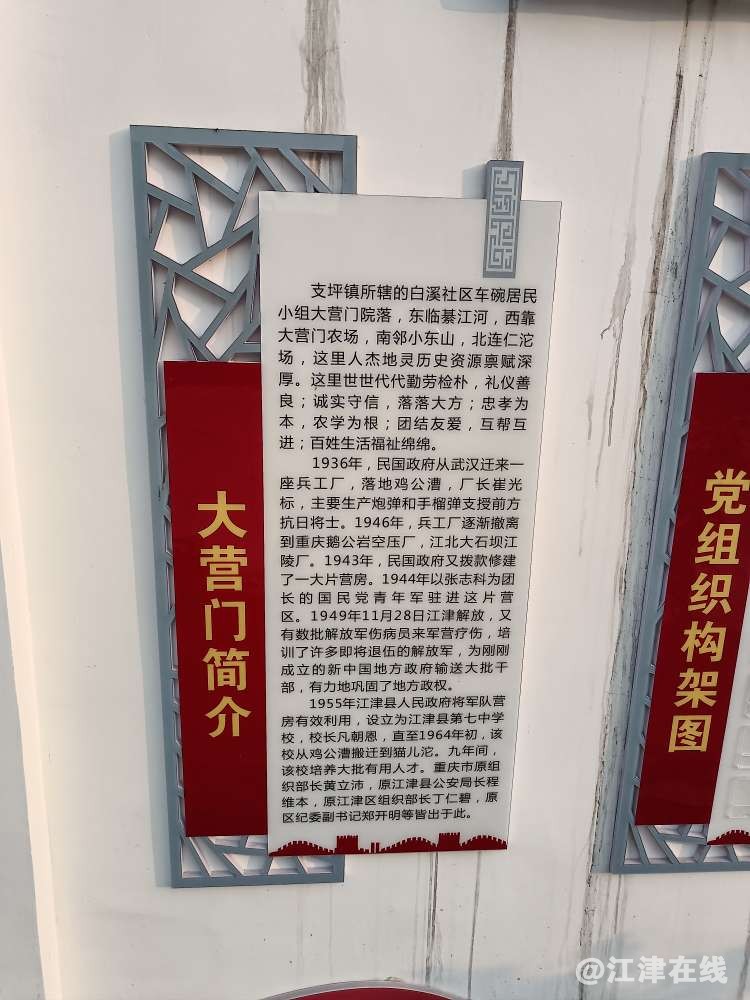 支坪镇所辖的白溪社区车碗居民
小组大营门院落，东临綦江河，西靠
大营门农场，南邻小东山，北连仁沱
场，这里人杰地灵历史资源禀赋深
厚。这里世世代代勤劳检朴，礼仪善
良；诚实守信，落落大方；忠孝为
本，农学为根；团结友爱，互帮互
进；百姓生活福祉绵绵。
1936年，民国政府从武汉迁来一
座兵工厂，落地鸡公漕，厂长崔光
标，主要生产炮弹和手榴弹支授前方
抗日将士。1946年，兵工厂逐渐撤离
到重庆鹅公岩空压厂，江北大石坝江
陵厂。1943年，民国政府又拨款修建
了一大片营房。1944年以张志科为团
长的国民党青年军驻进这片营
区。1949年11月28日江津解放，又
有数批解放军伤病员来军营疗伤，培
训了许多即将退伍的解放军，为刚刚
成立的新中国地方政府输送大批干
部，有力地巩固了地方政权。
1955年江津县人民政府将军队营
房有效利用，设立为江津县第七中学
校，校长凡朝恩，直至1964年初，该
校从鸡公漕搬迁到猫儿沱。九年间，
该校培养大批有用人才。重庆市原组
织部长黄立沛，原江津县公安局长程
维本，原江津区组织部长丁仁碧，原
区纪委副书记郑开明等皆出于此。
大营门简介
党组织构架图
@江津在线